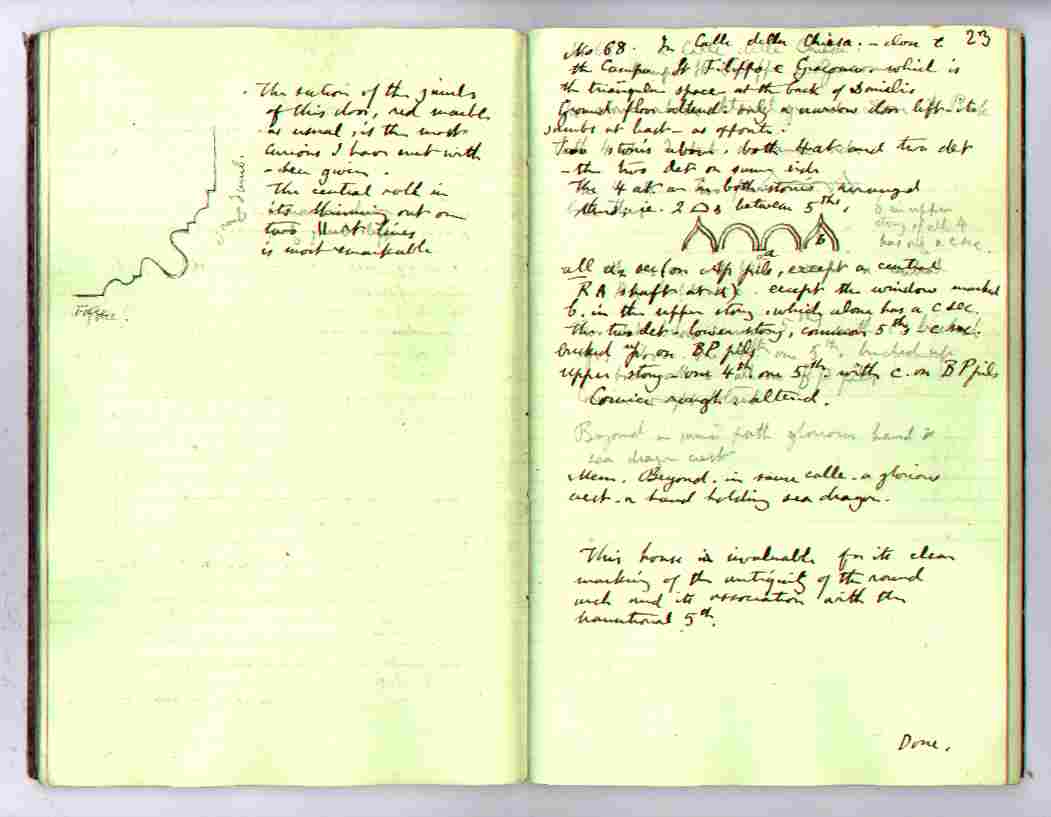 The section of the jambs
of this door, red marble
as usual, is the most
curious I have met with
- here given.
The central roll in
its thinning out on
two lines
is most remarkable
Jamb.
23
No 68. In Calle della Chiesa. - close to
the Campo St Filippo e Giacomo. which is
the triangular space at the back of Danielis
Ground floor altered: only a narrow door left - its
jambs at last - as opposite.
Two stories above, both 4 at and two det
- the two det on side
The 4 at in both stories arranged
otherwise. 2 between 5ths,
b in upper
story of all 4
has a c sec
b
a
all sec (on pils, except a central
R A shaft at a) except the window marked
b. in the upper story, which alone has a c sec.
The two det - lower story, common 5ths c sec.
bricked up, on B.P. pils
upper story - one 4th one 5th, with c. on B P pils
Cornice rough - altered.
Beyond in same path glorious hand &
sea dragon crest
Mem. Beyond. in same calle - a glorious
crest - a hand holding sea dragon.
This house is invaluable for its clear
marking of the antiquity of the round
arch and its association with the
transitional 5th.
Done.